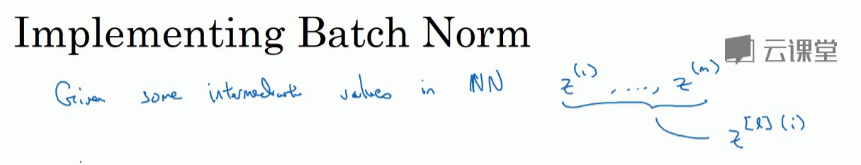 Implementing Batch Norm
云课堂
Given some intermediate values in NN z^(1), ..., z^(m)
z^[l](i)